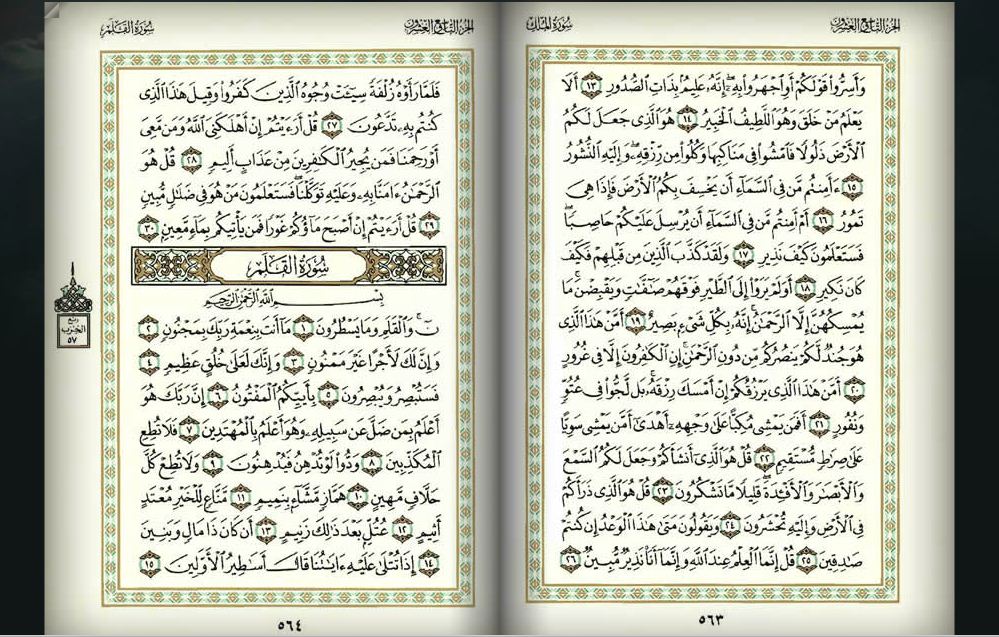 الجزء التاسع والعشرون
سورة الملك
وَأَسِرُّوا۟ قَوْلَكُمْ أَوِ ٱجْهَرُوا۟ بِهِۦٓ ۖ إِنَّهُۥ عَلِيمٌۢ بِذَاتِ ٱلصُّدُورِ ١٣ أَلَا
يَعْلَمُ مَنْ خَلَقَ وَهُوَ ٱللَّطِيفُ ٱلْخَبِيرُ ١٤ هُوَ ٱلَّذِى جَعَلَ لَكُمُ
ٱلْأَرْضَ ذَلُولًا فَٱمْشُوا۟ فِى مَنَاكِبِهَا وَكُلُوا۟ مِن رِّزْقِهِۦ ۖ وَإِلَيْهِ ٱلنُّشُورُ
١٥ ءَأَمِنتُم مَّن فِى ٱلسَّمَآءِ أَن يَخْسِفَ بِكُمُ ٱلْأَرْضَ فَإِذَا هِىَ
تَمُورُ ١٦ أَمْ أَمِنتُم مَّن فِى ٱلسَّمَآءِ أَن يُرْسِلَ عَلَيْكُمْ حَاصِبًا ۖ
فَسَتَعْلَمُونَ كَيْفَ نَذِيرِ ١٧ وَلَقَدْ كَذَّبَ ٱلَّذِينَ مِن قَبْلِهِمْ فَكَيْفَ
كَانَ نَكِيرِ ١٨ أَوَلَمْ يَرَوْا۟ إِلَى ٱلطَّيْرِ فَوْقَهُمْ صَٰٓفَّٰتٍ وَيَقْبِضْنَ ۚ مَا
يُمْسِكُهُنَّ إِلَّا ٱلرَّحْمَٰنُ ۚ إِنَّهُۥ بِكُلِّ شَىْءٍۭ بَصِيرٌ ١٩ أَمَّنْ هَٰذَا ٱلَّذِى
هُوَ جُندٌ لَّكُمْ يَنصُرُكُم مِّن دُونِ ٱلرَّحْمَٰنِ ۚ إِنِ ٱلْكَٰفِرُونَ إِلَّا فِى غُرُورٍ
٢٠ أَمَّنْ هَٰذَا ٱلَّذِى يَرْزُقُكُمْ إِنْ أَمْسَكَ رِزْقَهُۥ ۚ بَل لَّجُّوا۟ فِى عُتُوٍّ
وَنُفُورٍ ٢١ أَفَمَن يَمْشِى مُكِبًّا عَلَىٰ وَجْهِهِۦٓ أَهْدَىٰٓ أَمَّن يَمْشِى سَوِيًّا
عَلَىٰ صِرَٰطٍ مُّسْتَقِيمٍ ٢٢ قُلْ هُوَ ٱلَّذِىٓ أَنشَأَكُمْ وَجَعَلَ لَكُمُ ٱلسَّمْعَ
وَٱلْأَبْصَٰرَ وَٱلْأَفْـِٔدَةَ ۖ قَلِيلًا مَّا تَشْكُرُونَ ٢٣ قُلْ هُوَ ٱلَّذِى ذَرَأَكُمْ
فِى ٱلْأَرْضِ وَإِلَيْهِ تُحْشَرُونَ ٢٤ وَيَقُولُونَ مَتَىٰ هَٰذَا ٱلْوَعْدُ إِن كُنتُمْ
صَٰدِقِينَ ٢٥ قُلْ إِنَّمَا ٱلْعِلْمُ عِندَ ٱللَّهِ وَإِنَّمَآ أَنَا۠ نَذِيرٌ مُّبِينٌ ٢٦
٥٦٣
الجزء التاسع والعشرون
سورة القلم
فَلَمَّا رَأَوْهُ زُلْفَةً سِيٓـَٔتْ وُجُوهُ ٱلَّذِينَ كَفَرُوا۟ وَقِيلَ هَٰذَا ٱلَّذِى
كُنتُم بِهِۦ تَدَّعُونَ ٢٧ قُلْ أَرَءَيْتُمْ إِنْ أَهْلَكَنِىَ ٱللَّهُ وَمَن مَّعِىَ
أَوْ رَحِمَنَا فَمَن يُجِيرُ ٱلْكَٰفِرِينَ مِنْ عَذَابٍ أَلِيمٍ ٢٨ قُلْ هُوَ
ٱلرَّحْمَٰنُ ءَامَنَّا بِهِۦ وَعَلَيْهِ تَوَكَّلْنَا ۖ فَسَتَعْلَمُونَ مَنْ هُوَ فِى ضَلَٰلٍ مُّبِينٍ
٢٩ قُلْ أَرَءَيْتُمْ إِنْ أَصْبَحَ مَآؤُكُمْ غَوْرًا فَمَن يَأْتِيكُم بِمَآءٍ مَّعِينٍۭ ٣٠
سُورَةُ القَلَمِ
بِسْمِ ٱللَّهِ ٱلرَّحْمَٰنِ ٱلرَّحِيمِ
نٓ ۚ وَٱلْقَلَمِ وَمَا يَسْطُرُونَ ١ مَآ أَنتَ بِنِعْمَةِ رَبِّكَ بِمَجْنُونٍ ٢
وَإِنَّ لَكَ لَأَجْرًا غَيْرَ مَمْنُونٍ ٣ وَإِنَّكَ لَعَلَىٰ خُلُقٍ عَظِيمٍ ٤
فَسَتُبْصِرُ وَيُبْصِرُونَ ٥ بِأَييِّكُمُ ٱلْمَفْتُونُ ٦ إِنَّ رَبَّكَ هُوَ
أَعْلَمُ بِمَن ضَلَّ عَن سَبِيلِهِۦ وَهُوَ أَعْلَمُ بِٱلْمُهْتَدِينَ ٧ فَلَا تُطِعِ
ٱلْمُكَذِّبِينَ ٨ وَدُّوا۟ لَوْ تُدْهِنُ فَيُدْهِنُونَ ٩ وَلَا تُطِعْ كُلَّ
حَلَّافٍ مَّهِينٍ ١٠ هَمَّازٍ مَّشَّآءٍۭ بِنَمِيمٍ ١١ مَّنَّاعٍ لِّلْخَيْرِ مُعْتَدٍ
أَثِيمٍ ١٢ عُتُلٍّۭ بَعْدَ ذَٰلِكَ زَنِيمٍ ١٣ أَن كَانَ ذَا مَالٍ وَبَنِينَ
١٤ إِذَا تُتْلَىٰ عَلَيْهِ ءَايَٰتُنَا قَالَ أَسَٰطِيرُ ٱلْأَوَّلِينَ ١٥
ربع
الحزب
٥٧
٥٦٤